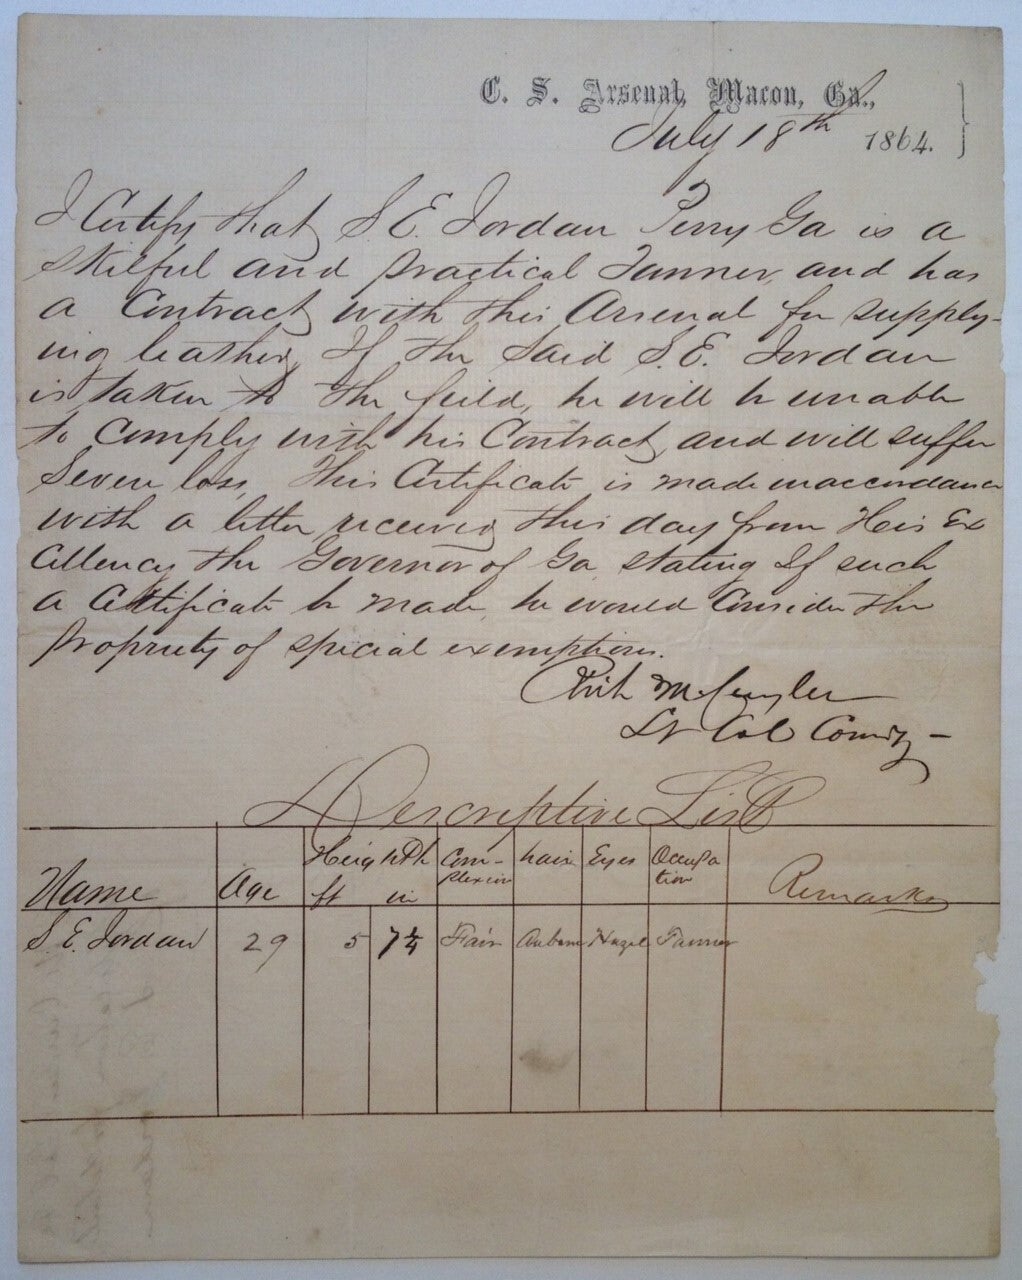 C. S. Arsenal, Macon, Ga.,
July 18th 1864.
I Certify that S. E. Jordan Perry Ga is a
skilful and practical Tanner, and has
a Contract with this Arsenal for supply-
ing leather, If the Said S. E. Jordan
is taken to the feild, he will be unable
to Comply with his Contract, and will suffer
Severe loss, This Certificate is made in accordance
with a letter received this day from His Ex
cellency the Governor of Ga stating If such
a Cettificate be made, he would Consider the
propriety of special exemption.
M. Cuyler
Lt Col Comdg –
Descriptive List
Name Age Heighth ft in Com-plexion hair Eyes Occupation Remarks
S. E. Jordan 29 5 7 1/4 Fair Auburn Hazel Tanner